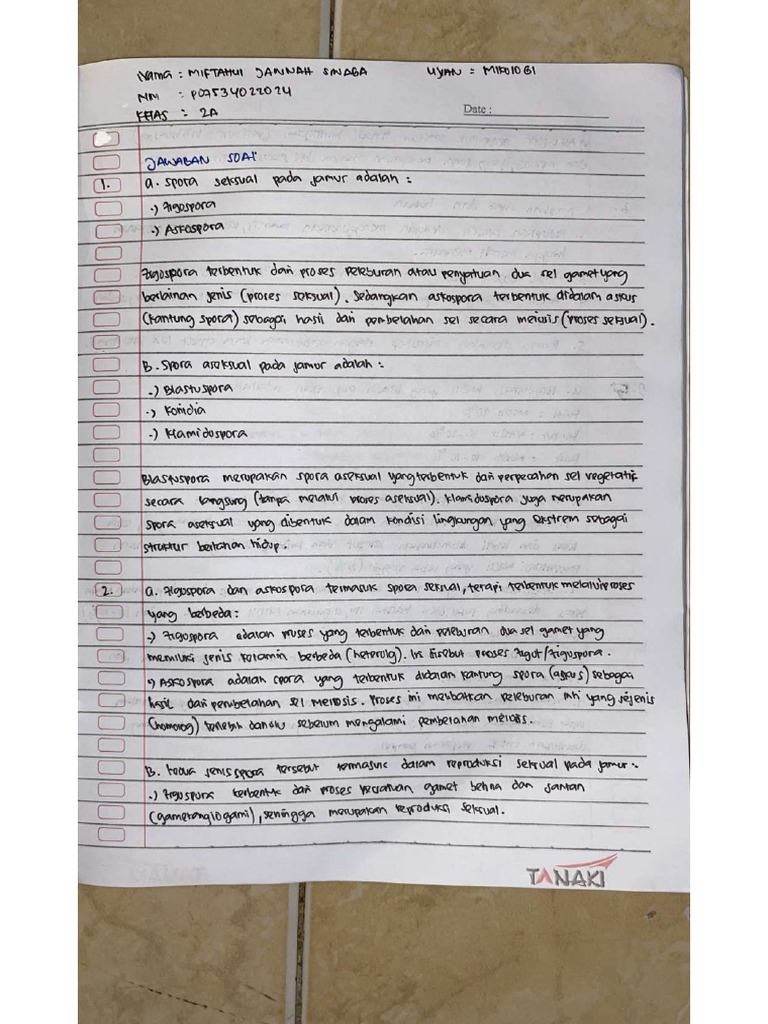 Nama : MIFTAHUL JANNAH SINAGA UJIAN : MIKOLOGI
NIM : P07534022024
KELAS : 2A
Date :
JAWABAN SOAL
1. a. Spora seksual pada jamur adalah :
·) Zigospora
·) Askospora
Zigospora terbentuk dari proses peleburan atau penyatuan dua sel gamet yang
berlainan jenis (proses seksual). Sedangkan askospora terbentuk didalam askus
(kantung spora) sebagai hasil dari pembelahan sel secara meiosis (proses seksual).
B. Spora aseksual pada jamur adalah :
·) Blastuspora
·) Konidia
·) Klamidospora
Blastuspora merupakan spora aseksual yang terbentuk dari perpecahan sel vegetatif
secara langsung (tanpa melalui proses aseksual). Klamidospora juga merupakan
spora aseksual yang dibentuk dalam kondisi lingkungan yang ekstrem sebagai
struktur bertahan hidup.
2. a. Zigospora dan askospora termasuk spora seksual, tetapi terbentuk melalui proses
yang berbeda :
·) Zigospora adalah proses yang terbentuk dari peleburan dua sel gamet yang
memiliki jenis kelamin berbeda (heterolog). Ini disebut proses zigot/zigospora.
·) Askospora adalah spora yang terbentuk didalam kantung spora (askus) sebagai
hasil dari pembelahan sel meiosis. Proses ini melibatkan peleburan inti yang sejenis
(homolog) terlebih dahulu sebelum mengalami pembelahan meiosis.
B. kedua jenis spora tersebut termasuk dalam reproduksi seksual pada jamur :
·) Zigospora terbentuk dari proses penyatuan gamet betina dan jantan
(gametangiogami), sehingga merupakan reproduksi seksual.
TANAKI